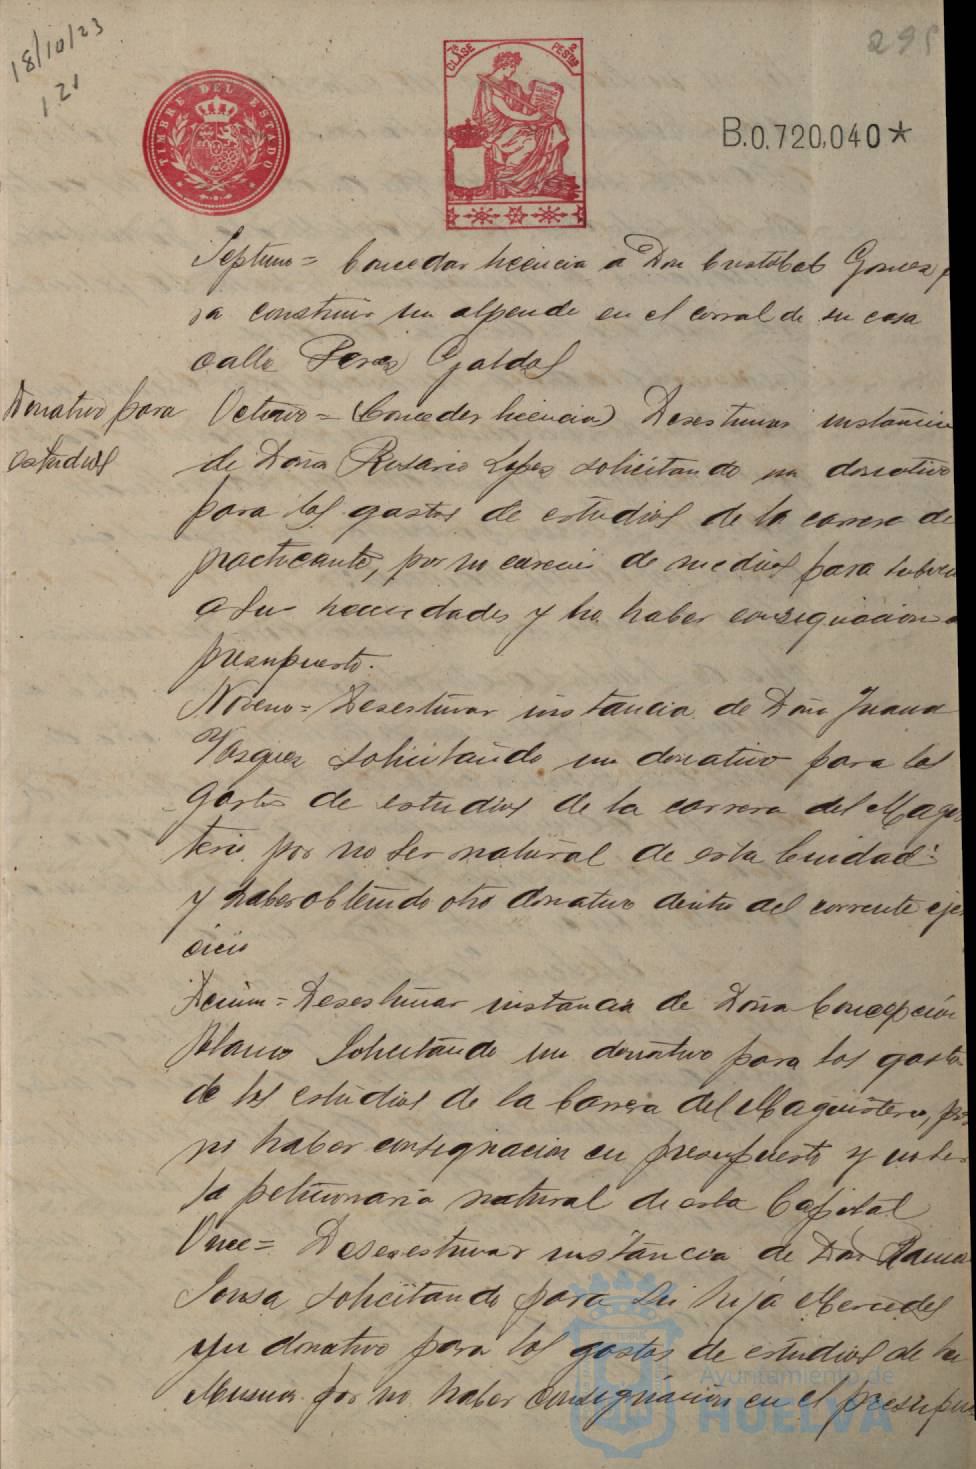 18/10/23
1.21
295
TIMBRE DEL ESTADO
7ª CLASE 2 PESETAS
B.0.720,040*
Septimo = Conceder licencia a Don Cristobal Gomez p
ra construir un alpende en el corral de su casa
calle Perez Galdos
Donativo para
estudios
Octavo = (Conceder licencia) Desestimar instancia
de Doña Rosario Lopez solicitando un donativo
para los gastos de estudios de la carrera de
practicante, por no carecer de medios para
a sus necesidades y no haber consignacion
presupuesto.
Noveno = Desestimar instancia de Doña Juana
Vasquez solicitando un donativo para los
gastos de estudios de la carrera del Magis
terio por no ser natural de esta Ciudad
y haber obtenido otro donativo dentro del corriente ejer
cicio
Decimo = Desestimar instancia de Doña Concepción
Blanco solicitando un donativo para los gastos
de los estudios de la Carrera del Magisterio, por
no haber consignacion en presupuesto y no ser
la peticionaria natural de esta Capital
Once = Desesestimar instancia de Don Ramon
Sousa solicitando para su hija Mercedes
un donativo para los gastos de estudios de la
Musica por no haber consignación en el presupues
Ayuntamiento de
HUELVA